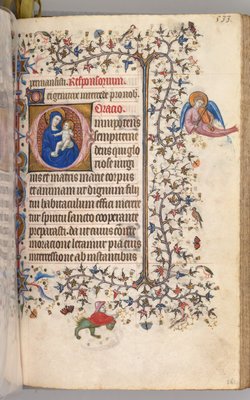 533.
permansisti. Responsorium.
Dei genitrix intercede pro nob.
Oracio.
Omnipotens
sempiterne
deus qui glo
riose virgi
nis et matris marie corpus
et animam ut dignum filij
tui habitaculum effici mere
tur spiritu sancto cooperante
preparasti. da ut cuius come
moracione letamur pia eius
intercessione ab instantibus